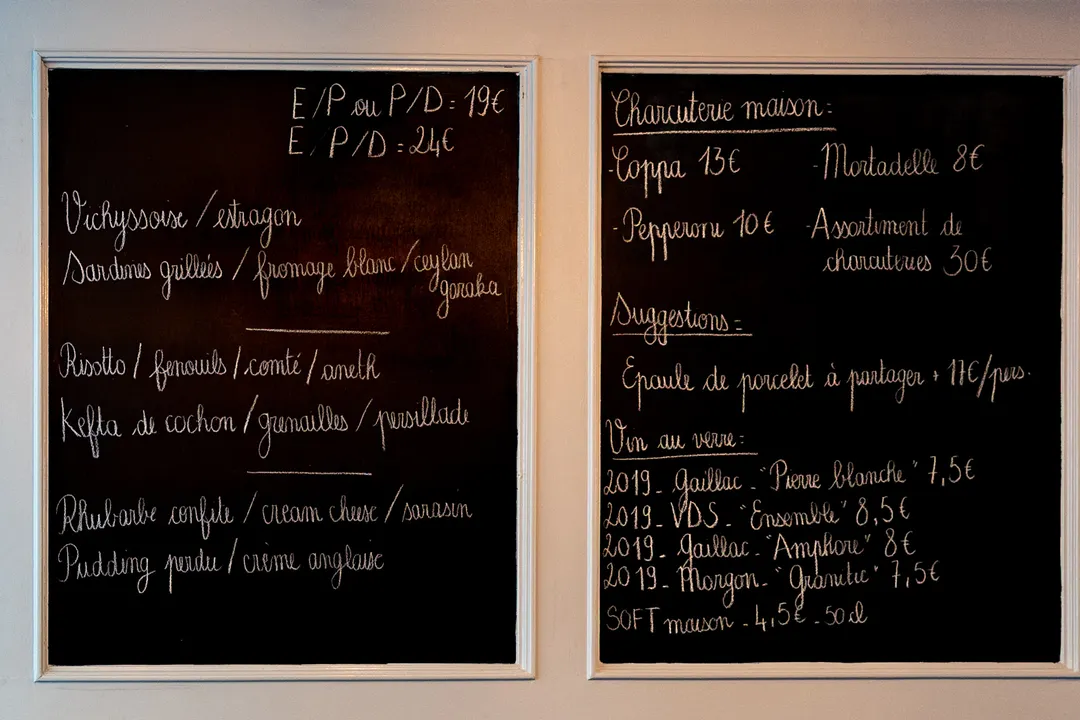 E/P ou P/D = 19€
E/P/D = 24€
Vichyssoise / estragon
Sardines grillées / fromage blanc / ceylan
goraka
Risotto / fenouils / comté / aneth
Kefta de cochon / grenailles / persillade
Rhubarbe confite / cream cheese / sarasin
Pudding perdu / crème anglaise
Charcuterie maison =
-Coppa 13€ -Mortadelle 8€
-Pepperoni 10€ -Assortiment de
charcuteries 30€
Suggestions =
Epaule de porcelet à partager + 17€/pers.
Vin au verre =
2019_ Gaillac _ "Pierre blanche" 7,5€
2019_ VDS _ "Ensemble" 8,5€
2019_ Gaillac _ "Amphore" 8€
2019_ Morgon _ "Granitic" 7,5€
SOFT maison _ 4,5€ _ 50cl